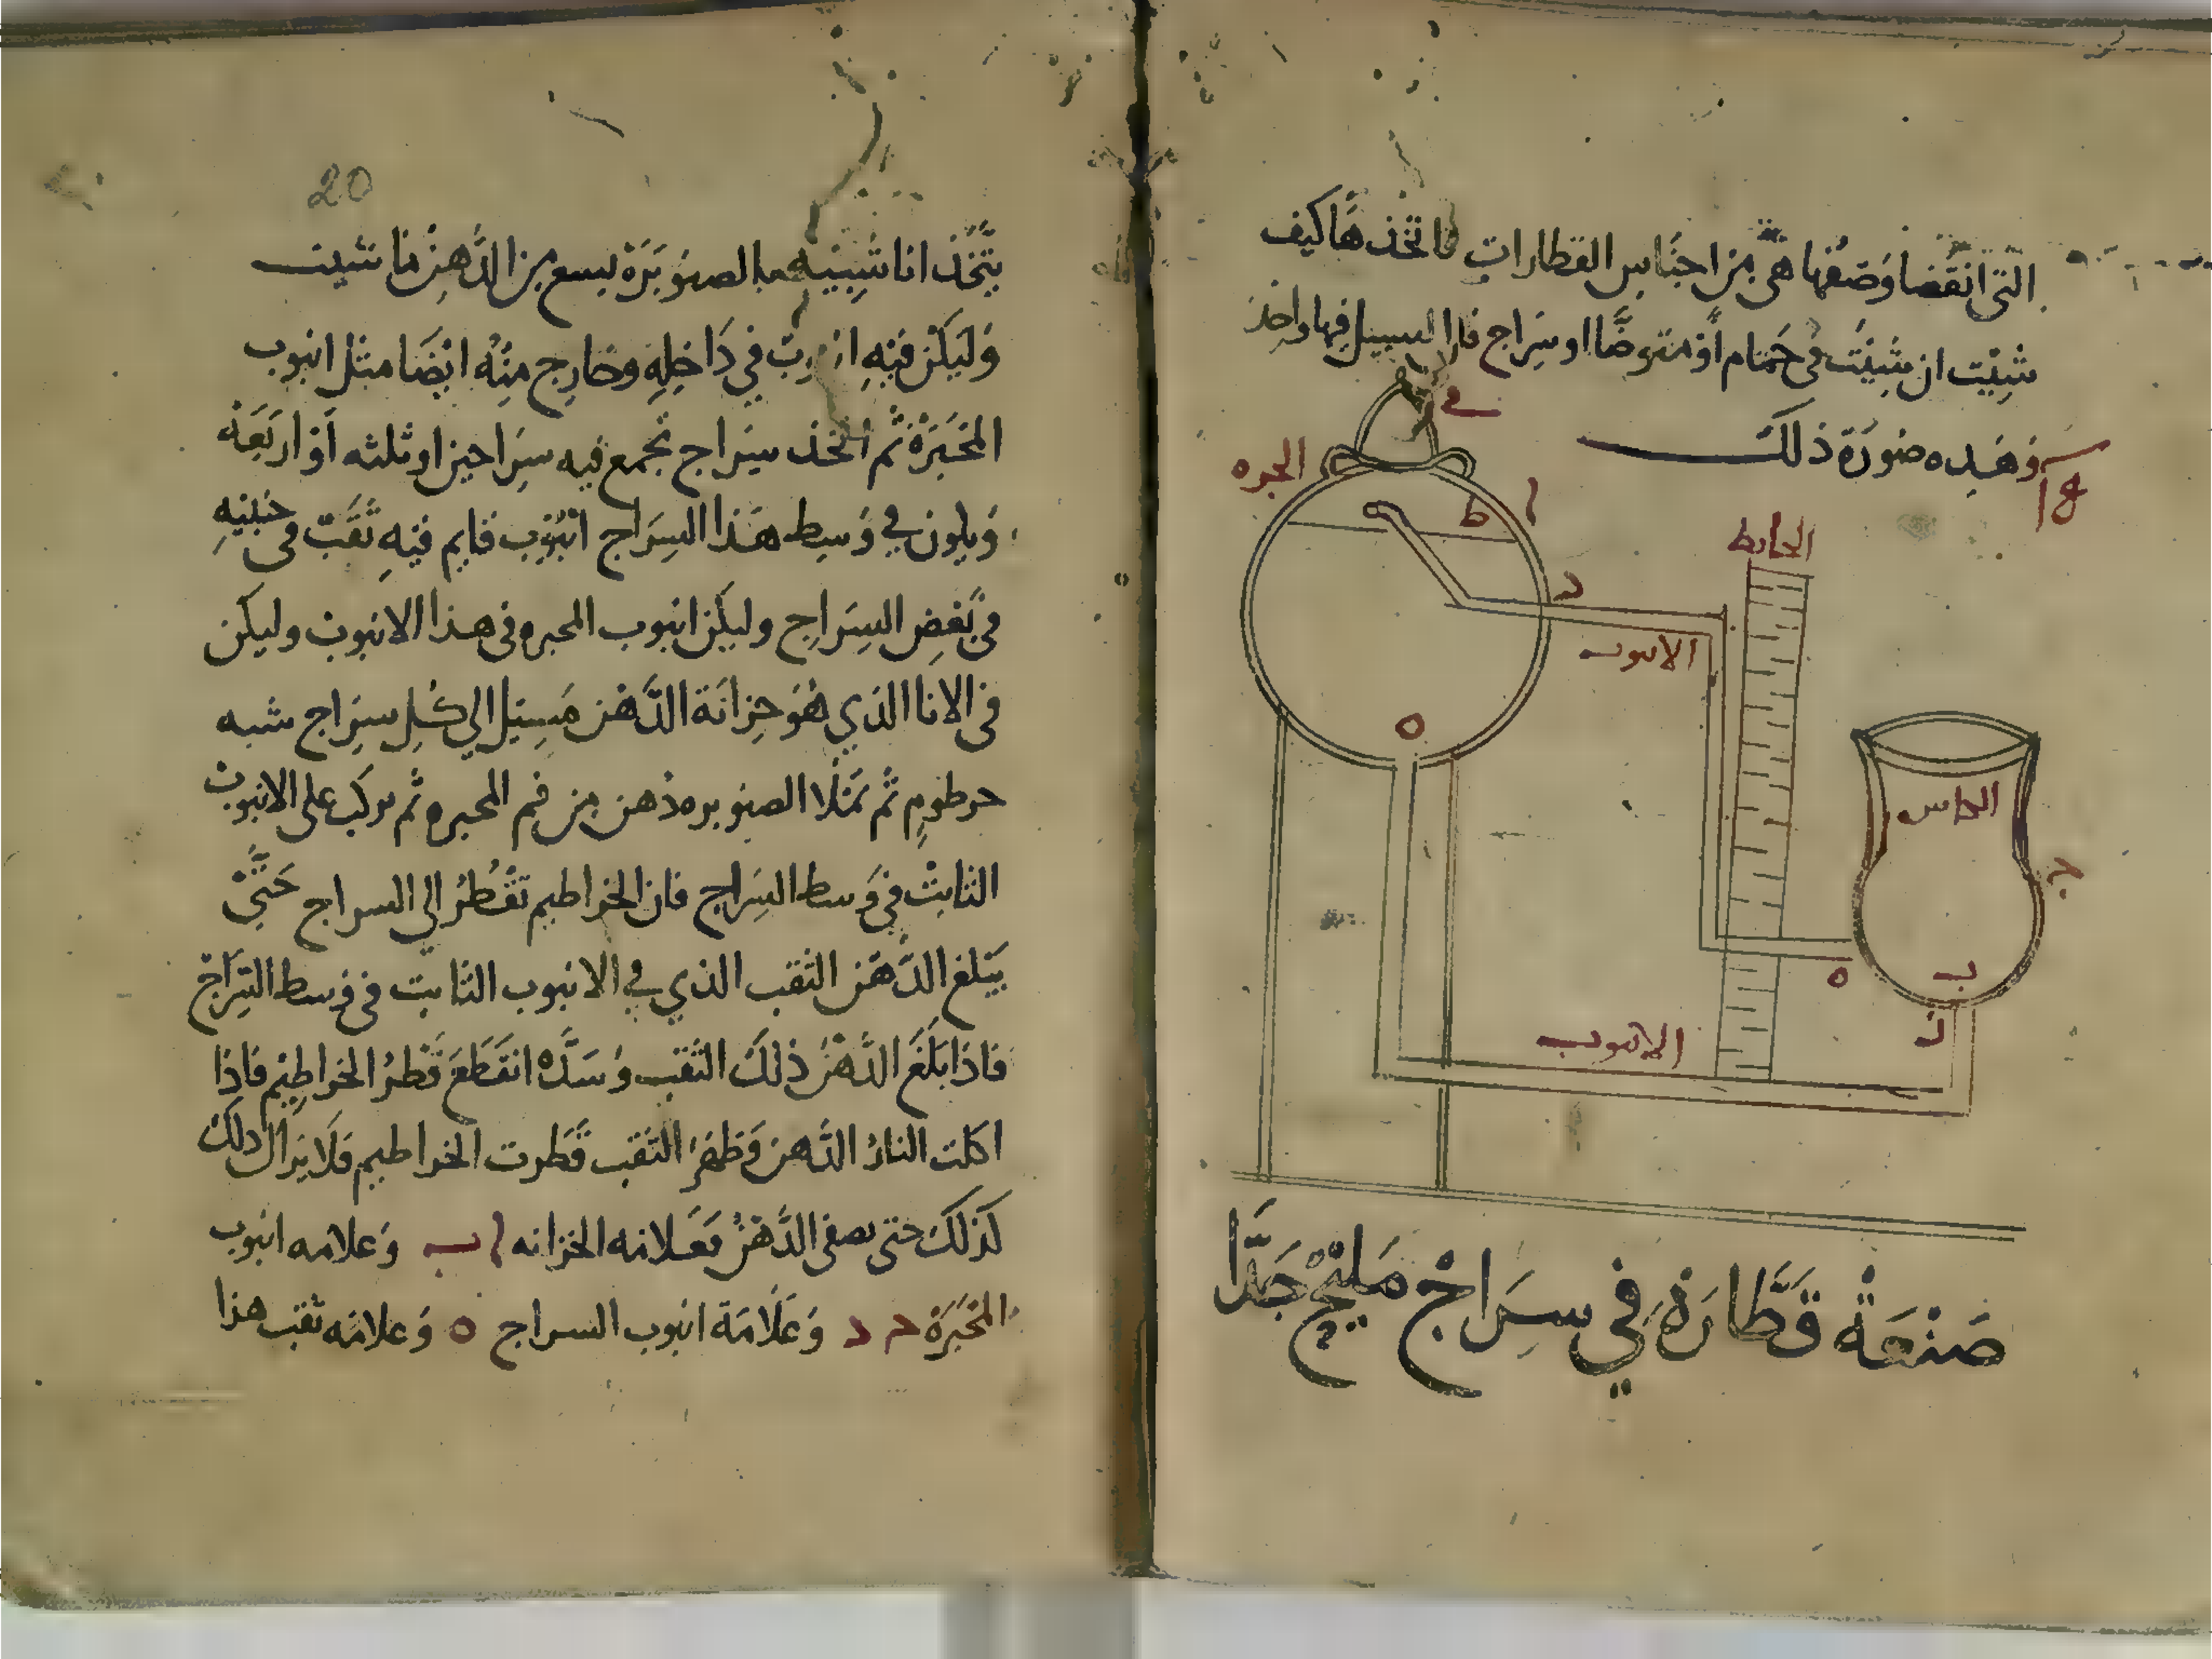 التي انقضا وصفها هي من اجناس القطارات فاتخذها كيف
شئت ان شئت في حمام او متوضا او سراج فان السبيل فيها واحد
وهذه صورة ذلك
18
في
الجره
ا
ط
الحايط
د
الانبوب
ه
الكاس
ج
ب
ه
ز
الانبوب
صَنْعَةُ قَطَّارَة في سِرَاجْ مَليحْ جَدَّا
20
يتخذ انا شبيه بالصنوبرة يسع من الدهن ما شيت
وليكن فيه في داخله وخارج منه ايضا مثل انبوب
المحبرة ثم اتخذ سراج تجمع فيه سراجين او ثلثه او اربعة
ويكون في وسط هذا السراج انبوب قايم فيه ثقب في جنبيه
في بعض السراج وليكن انبوب المحبره في هذا الانبوب وليكن
في الانا الذي هو خزانة الدهن مسيل الي كل سراج شبه
خرطوم ثم تملا الصنوبره دهن من فم المحبره ثم تركب على الانبوب
الثابت في وسط السراج فان الخراطيم تقطر الي السراج حتى
يبلغ الدهن الثقب الذي في الانبوب الثابت في وسط السراج
فاذا بلغ الدهن ذلك الثقب وسده انقطع قطر الخراطيم فاذا
اكلت النار الدهن وظهر الثقب قطرت الخراطيم فلا يزال ذلك
كذلك حتى يصفى الدهن فعلامه الخزانه ا ب وعلامه انبوب
المحبرة ح د وعلامة انبوب السراج ه وعلامه ثقب هذا